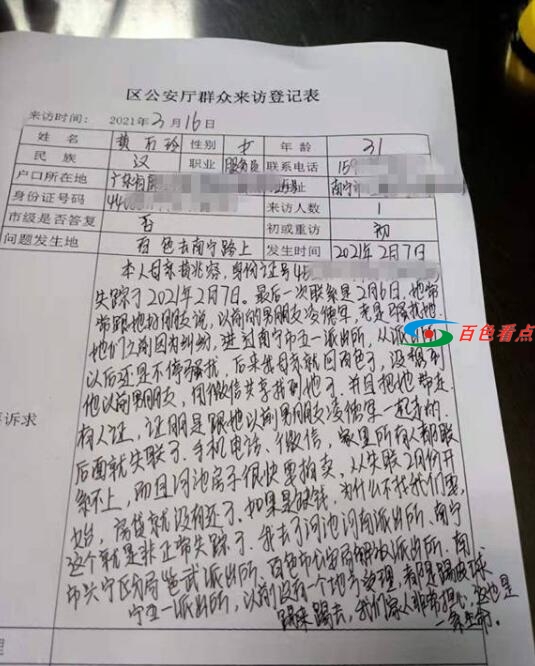 区公安厅群众来访登记表
来访时间: 2021年3月16日
姓名 黄 玲 性别 女 年龄 31
民族 汉 职业 服务员 联系电话 159
户口所在地 广东省 址 南宁
身份证号码 440 来访人数 1
市级是否答复 否 初或重访 初
问题发生地 百色去南宁路上 发生时间 2021年2月7日
诉求
本人母亲黄兆容,身份证号45
失踪了2021年2月7日。最后一次联系是2月6日,她常
常跟她好朋友说,以前的男朋友凌德军,老是骚扰她.
她们之前因为纠纷,进过南宁市五一派出所,从派出所
以后还是不停骚扰,后来我母亲就回百色了,没想到
他以前男朋友,用微信共享找到她了.并且把她带走.
有人证,证明是跟她以前男朋友凌德军一起走的.
后面就失联了.手机电话、微信,家里所有人都联
系不上,而且河池房子很快要拍卖、从失联2月份开
始,房贷就没有还了.如果是缺钱,为什么不找我们要,
这个就是非正常失踪了.我去了河池 派出所、南宁
市兴宁区分局 武派出所,百色市公安局 派出所.南
宁五一派出所,以前没有一个地方受理,都是踢皮球
踢来踢去,我们家人非常担心,这也是
一条生命.
理
百色看点